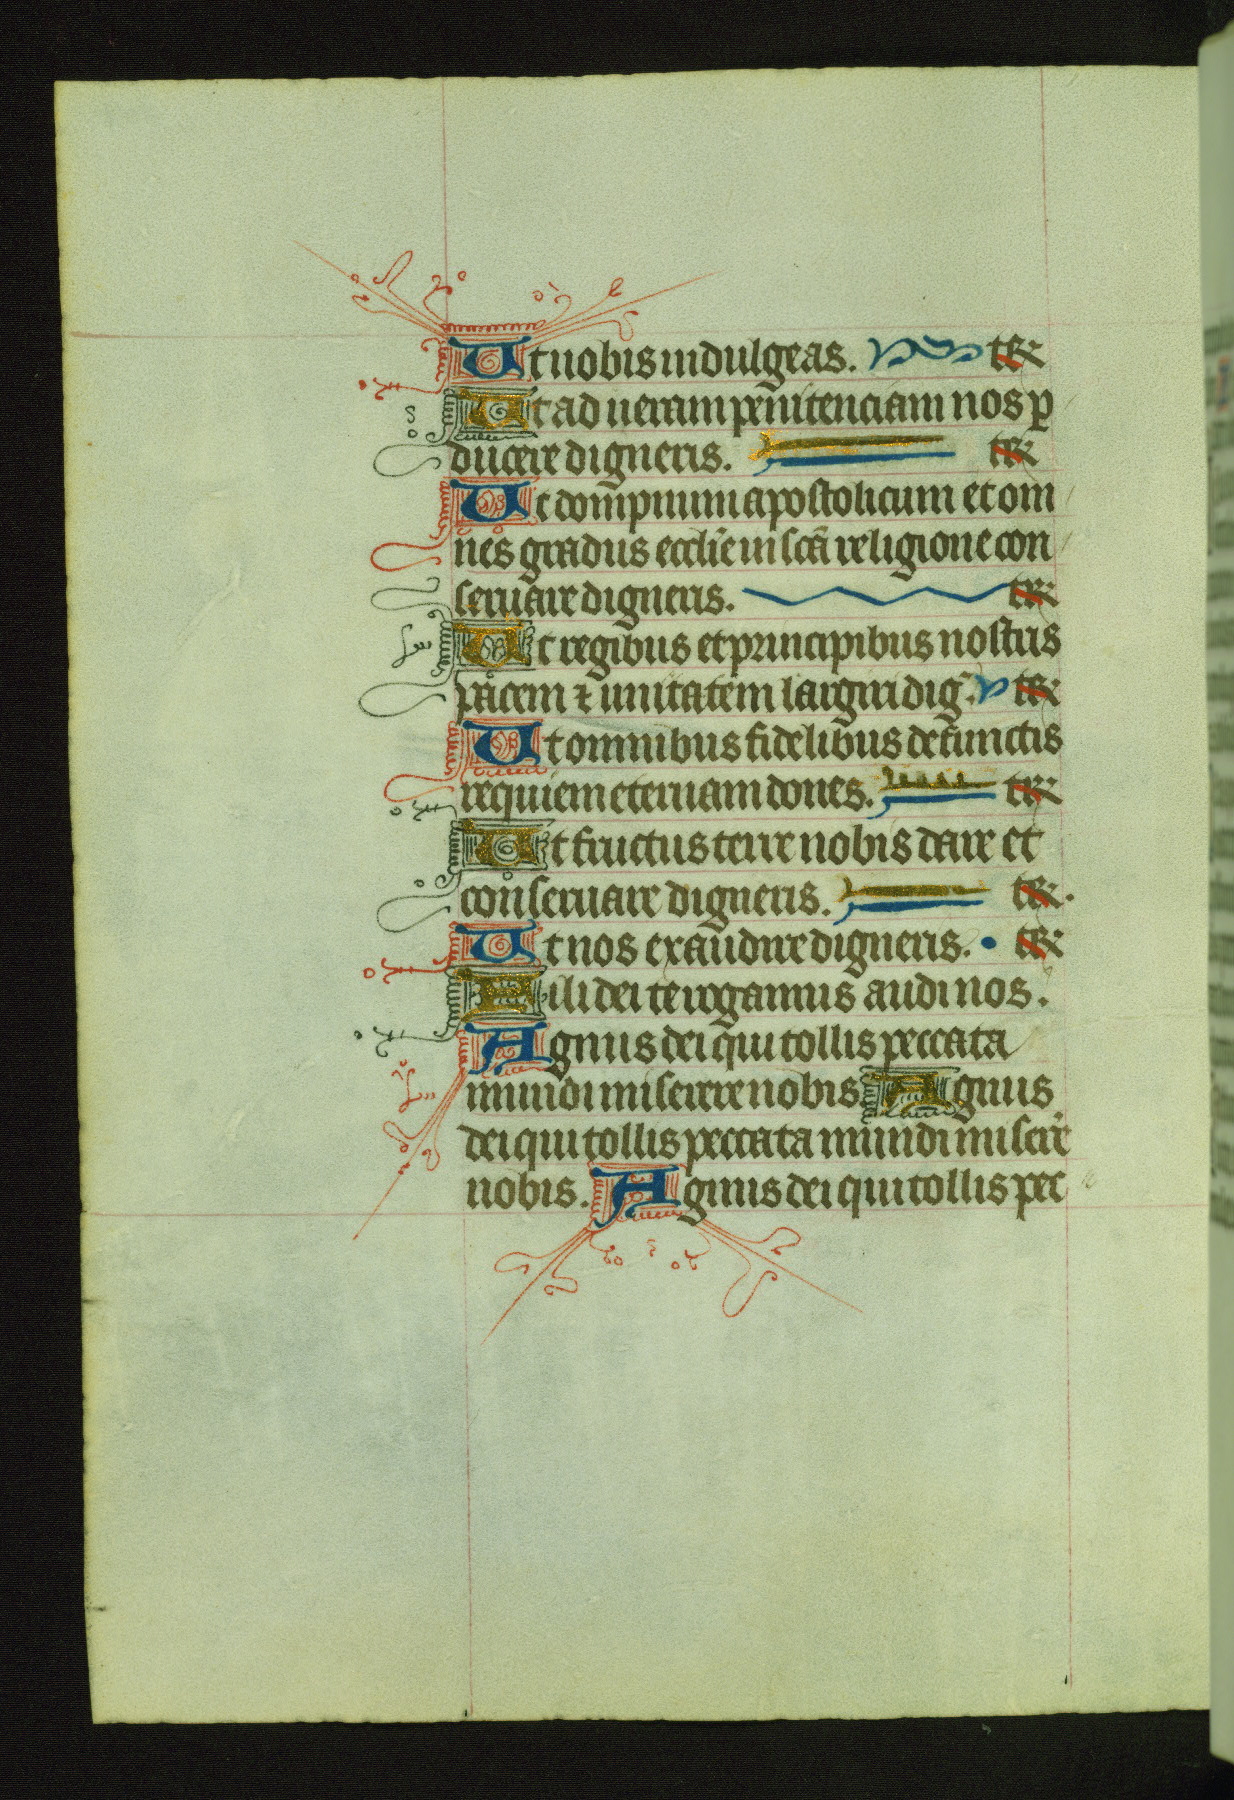 Ut nobis indulgeas. te R
Ut ad ueram penitenciam nos ꝑ
ducere digneris. te R
Ut dompnum apostolicum et om
nes gradus eccl̄ie in sc̄a religione con
seruare digneris. te R
Ut regibus et principibus nostris
pacem ⁊ unitatem largiri dig̾. te R
Ut omnibus fidelibus defunctis
requiem eternam dones. te R
Ut fructus terre nobis dare et
conseruare digneris. te R.
Ut nos exaudire digneris. te R
Fili dei te rogamus audi nos.
Agnus dei qui tollis peccata
mundi miserere nobis Agnus
dei qui tollis peccata mundi miser̄e
nobis. Agnus dei qui tollis pec